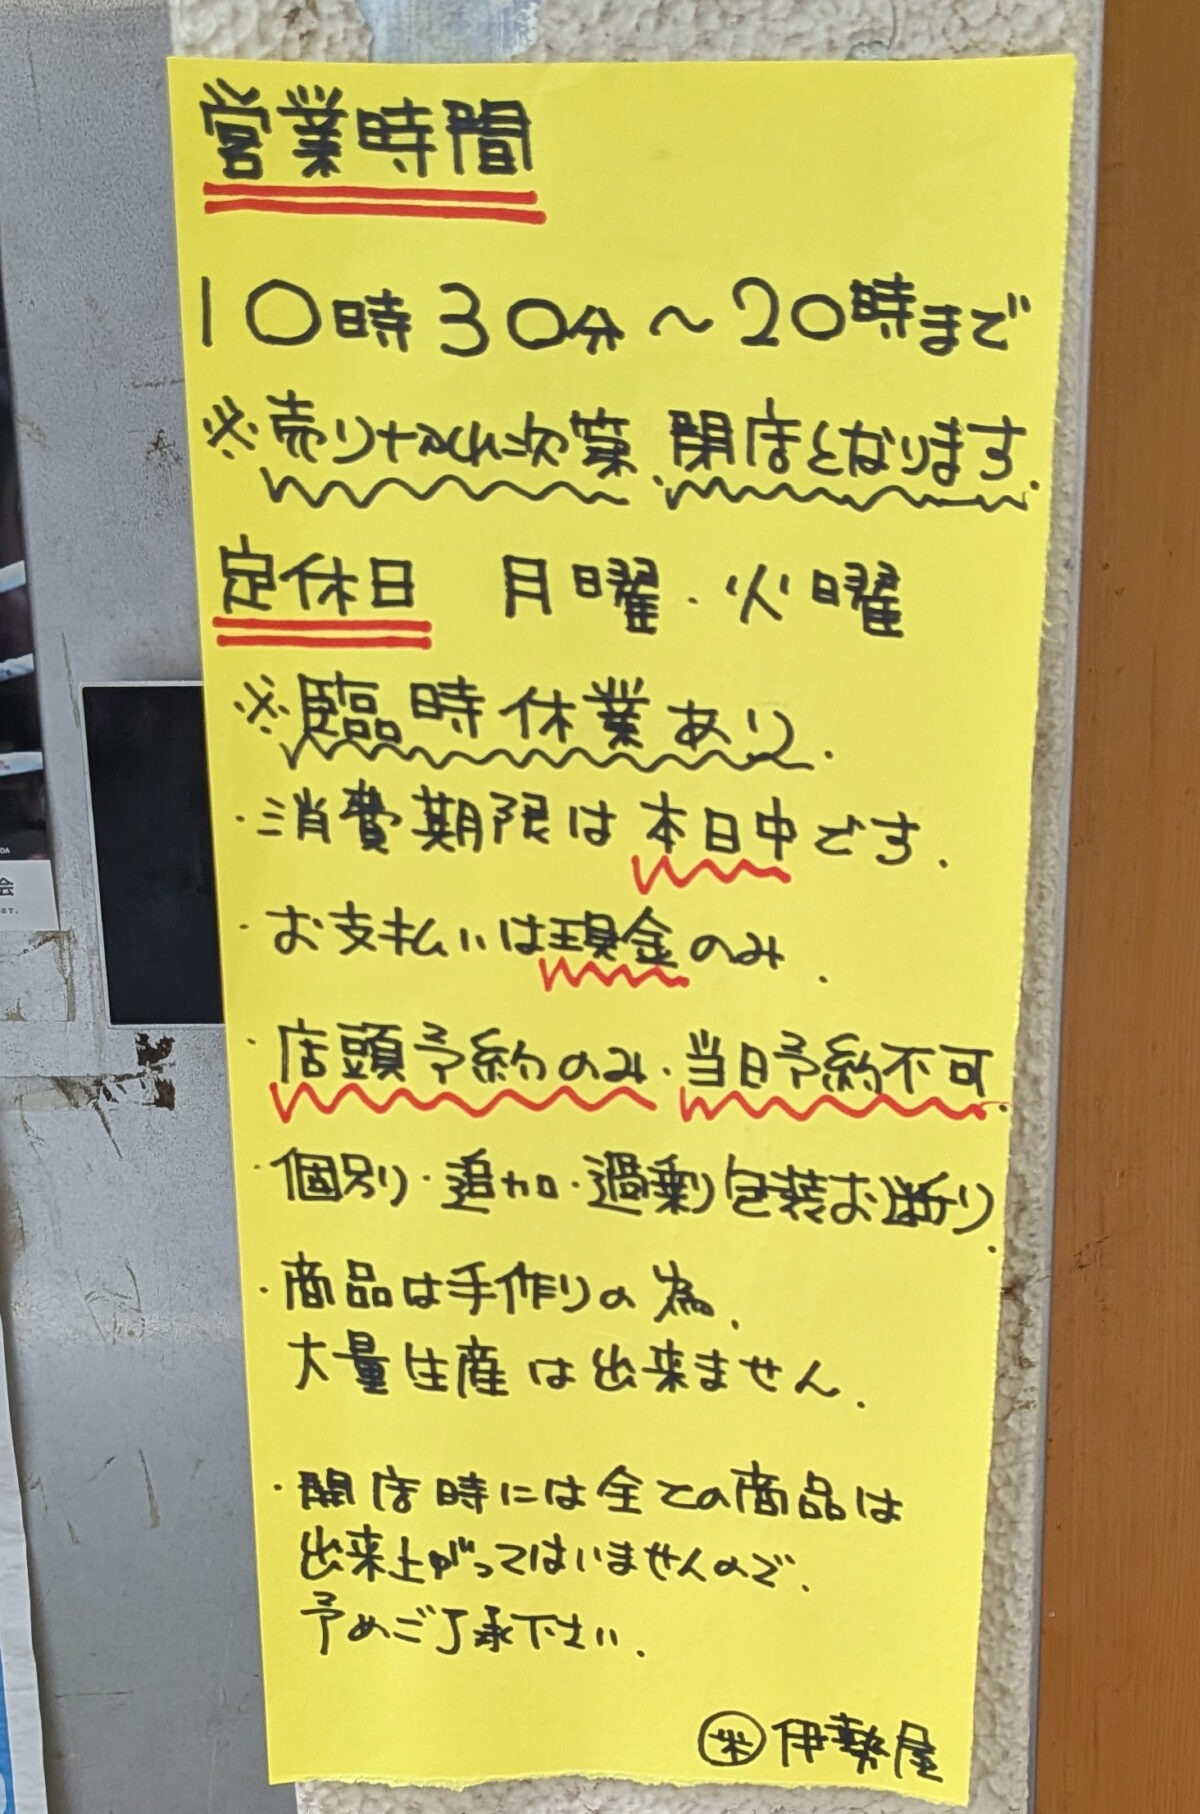 営業時間
10時30分〜20時まで
※売りきれ次第、閉店となります.
定休日 月曜・火曜
※臨時休業あり.
・消費期限は本日中です.
・お支払いは現金のみ.
・店頭予約のみ・当日予約不可.
・個別・追加・過剰包装お断り.
・商品は手作りの為、
大量生産は出来ません.
・開店時には全ての商品は
出来上がってはいませんので、
予めご了承下さい.
伊勢屋
DA
会
ます。